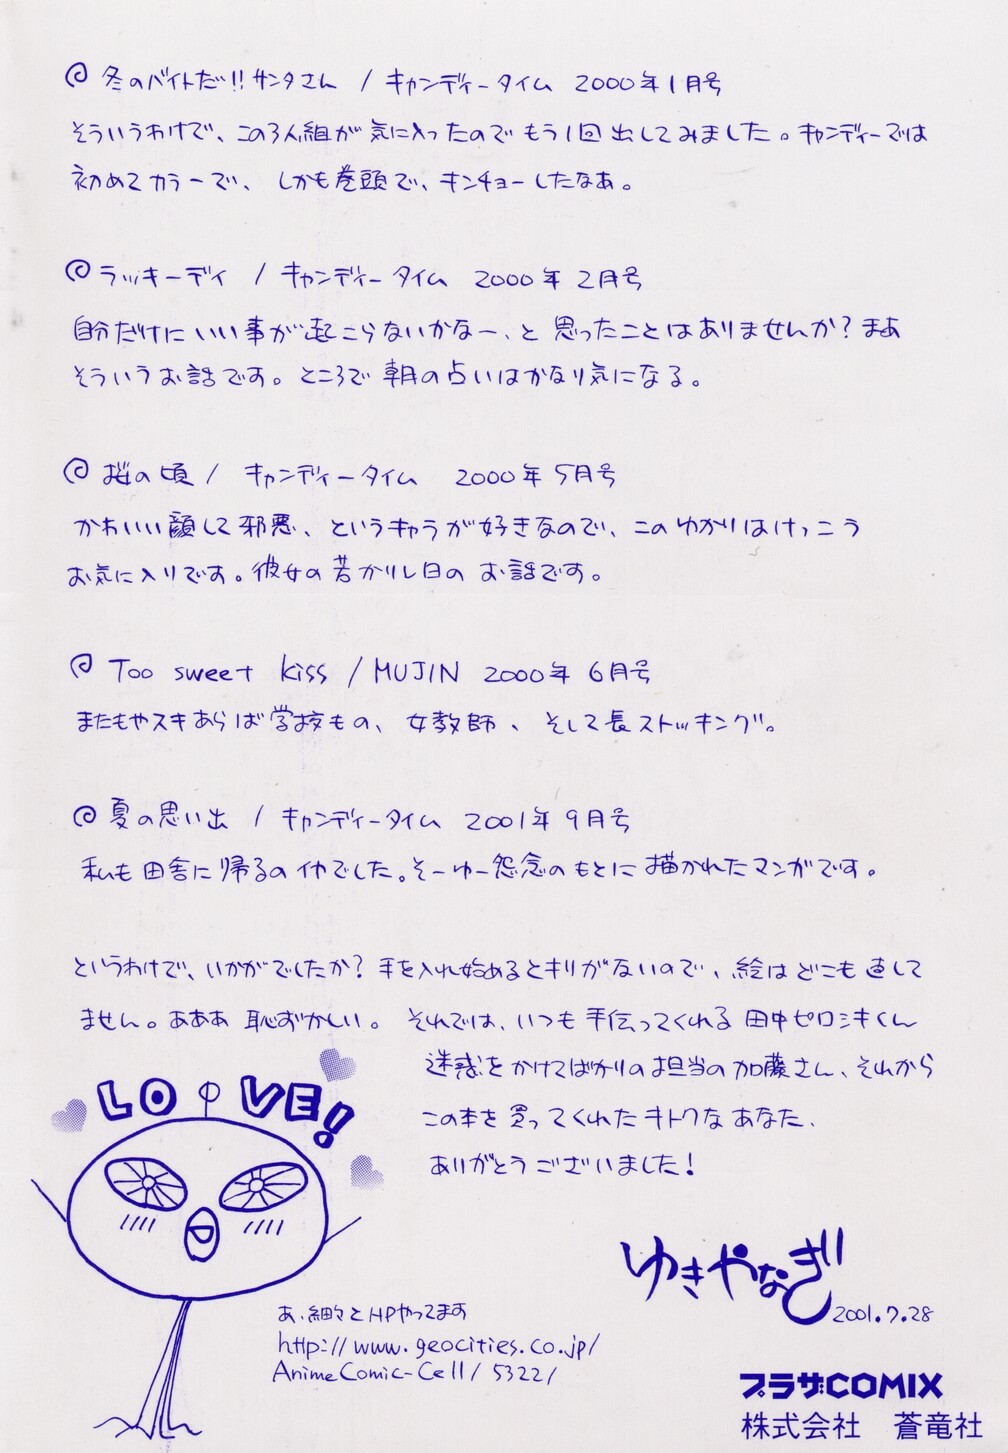 冬のバイトだ!! サンタさん / キャンディータイム 2000年1月号
そういうわけで、この3人組が気に入ったのでもう1回出してみました。キャンディーでは
初めてカラーで、しかも巻頭で、キンチョーしたなあ。
ラッキーデイ / キャンディータイム 2000年2月号
自分だけにいい事が起こらないかなー、と思ったことはありませんか?まあ
そういうお話です。ところで朝の占いはかなり気になる。
桜の頃 / キャンディータイム 2000年5月号
かわいい顔して邪悪、というキャラが好きなので、このゆかりはけっこう
お気に入りです。彼女の若かりし日のお話です。
Too sweet kiss / MUJIN 2000年6月号
またもやスキあらば学校もの、女教師、そして長ストッキング。
夏の思い出 / キャンディータイム 2001年9月号
私も田舎に帰るのイヤでした。そーゆー怨念のもとに描かれたマンガです。
というわけで、いかがでしたか?手を入れ始めるとキリがないので、絵はどこも直して
ません。あああ恥ずかしい。それでは、いつも手伝ってくれる田中ピロシキくん
迷惑をかけてばかりの担当の加藤さん、それから
この本を買ってくれたキトクなあなた、
ありがとうございました!
LOVE!
ゆきやなぎ
2001.7.28
あ、細々とHPやってます
http://www.geocities.co.jp/
AnimeComic-Cell/5322/
プラザCOMIX
株式会社 蒼竜社